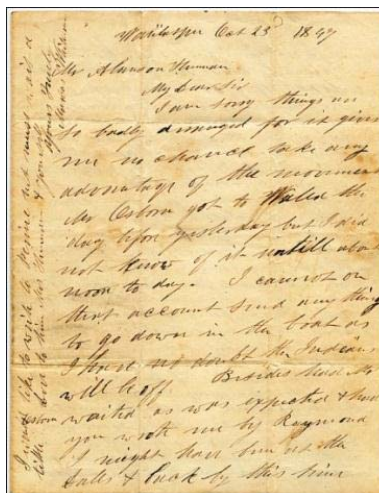 Waiilatpu Oct 23 1847
Mr Alanson Hinman
My Dear Sir
I am sorry things are
so badly arranged for it gives
me no chance take any
advantage of the movement
Mr Osborn got to the
day before yesterday but I did
not know of it untill about
noon to day. I cannot on
that account send any thing
to go down in the boat as
I have no doubt the Indians
will be off. Besides had Mr
Osborn waited as was expected & had
you wrote me by Raymond
I might have been at the
falls & back by this time
I would like to write to Perrine but have not
little love to him Mrs Hinman & yourself
Yours truly
Marcus Whitman